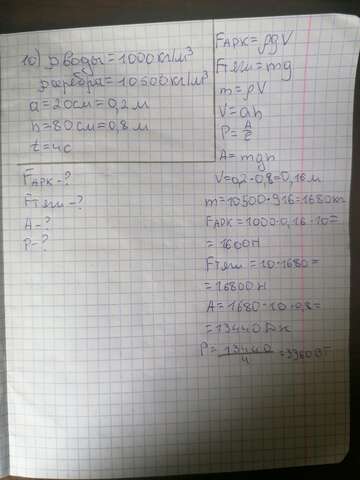 10) ρ воды = 1000 кг/м³
ρ серебра = 10500 кг/м³
a = 20 см = 0,2 м
h = 80 см = 0,8 м
t = 4 с
Fарк - ?
Fтяж - ?
A - ?
P - ?
Fарк = ρgV
Fтяж = mg
m = ρV
V = ah
P = A/t
A = mgh
V = 0,2 · 0,8 = 0,16 м
m = 10500 · 0,16 = 1680 кг
Fарк = 1000 · 0,16 · 10 =
= 1600 Н
Fтяж = 10 · 1680 =
= 16800 Н
A = 1680 · 10 · 0,8 =
= 13440 Дж
P = 13440/4 = 3360 Вт